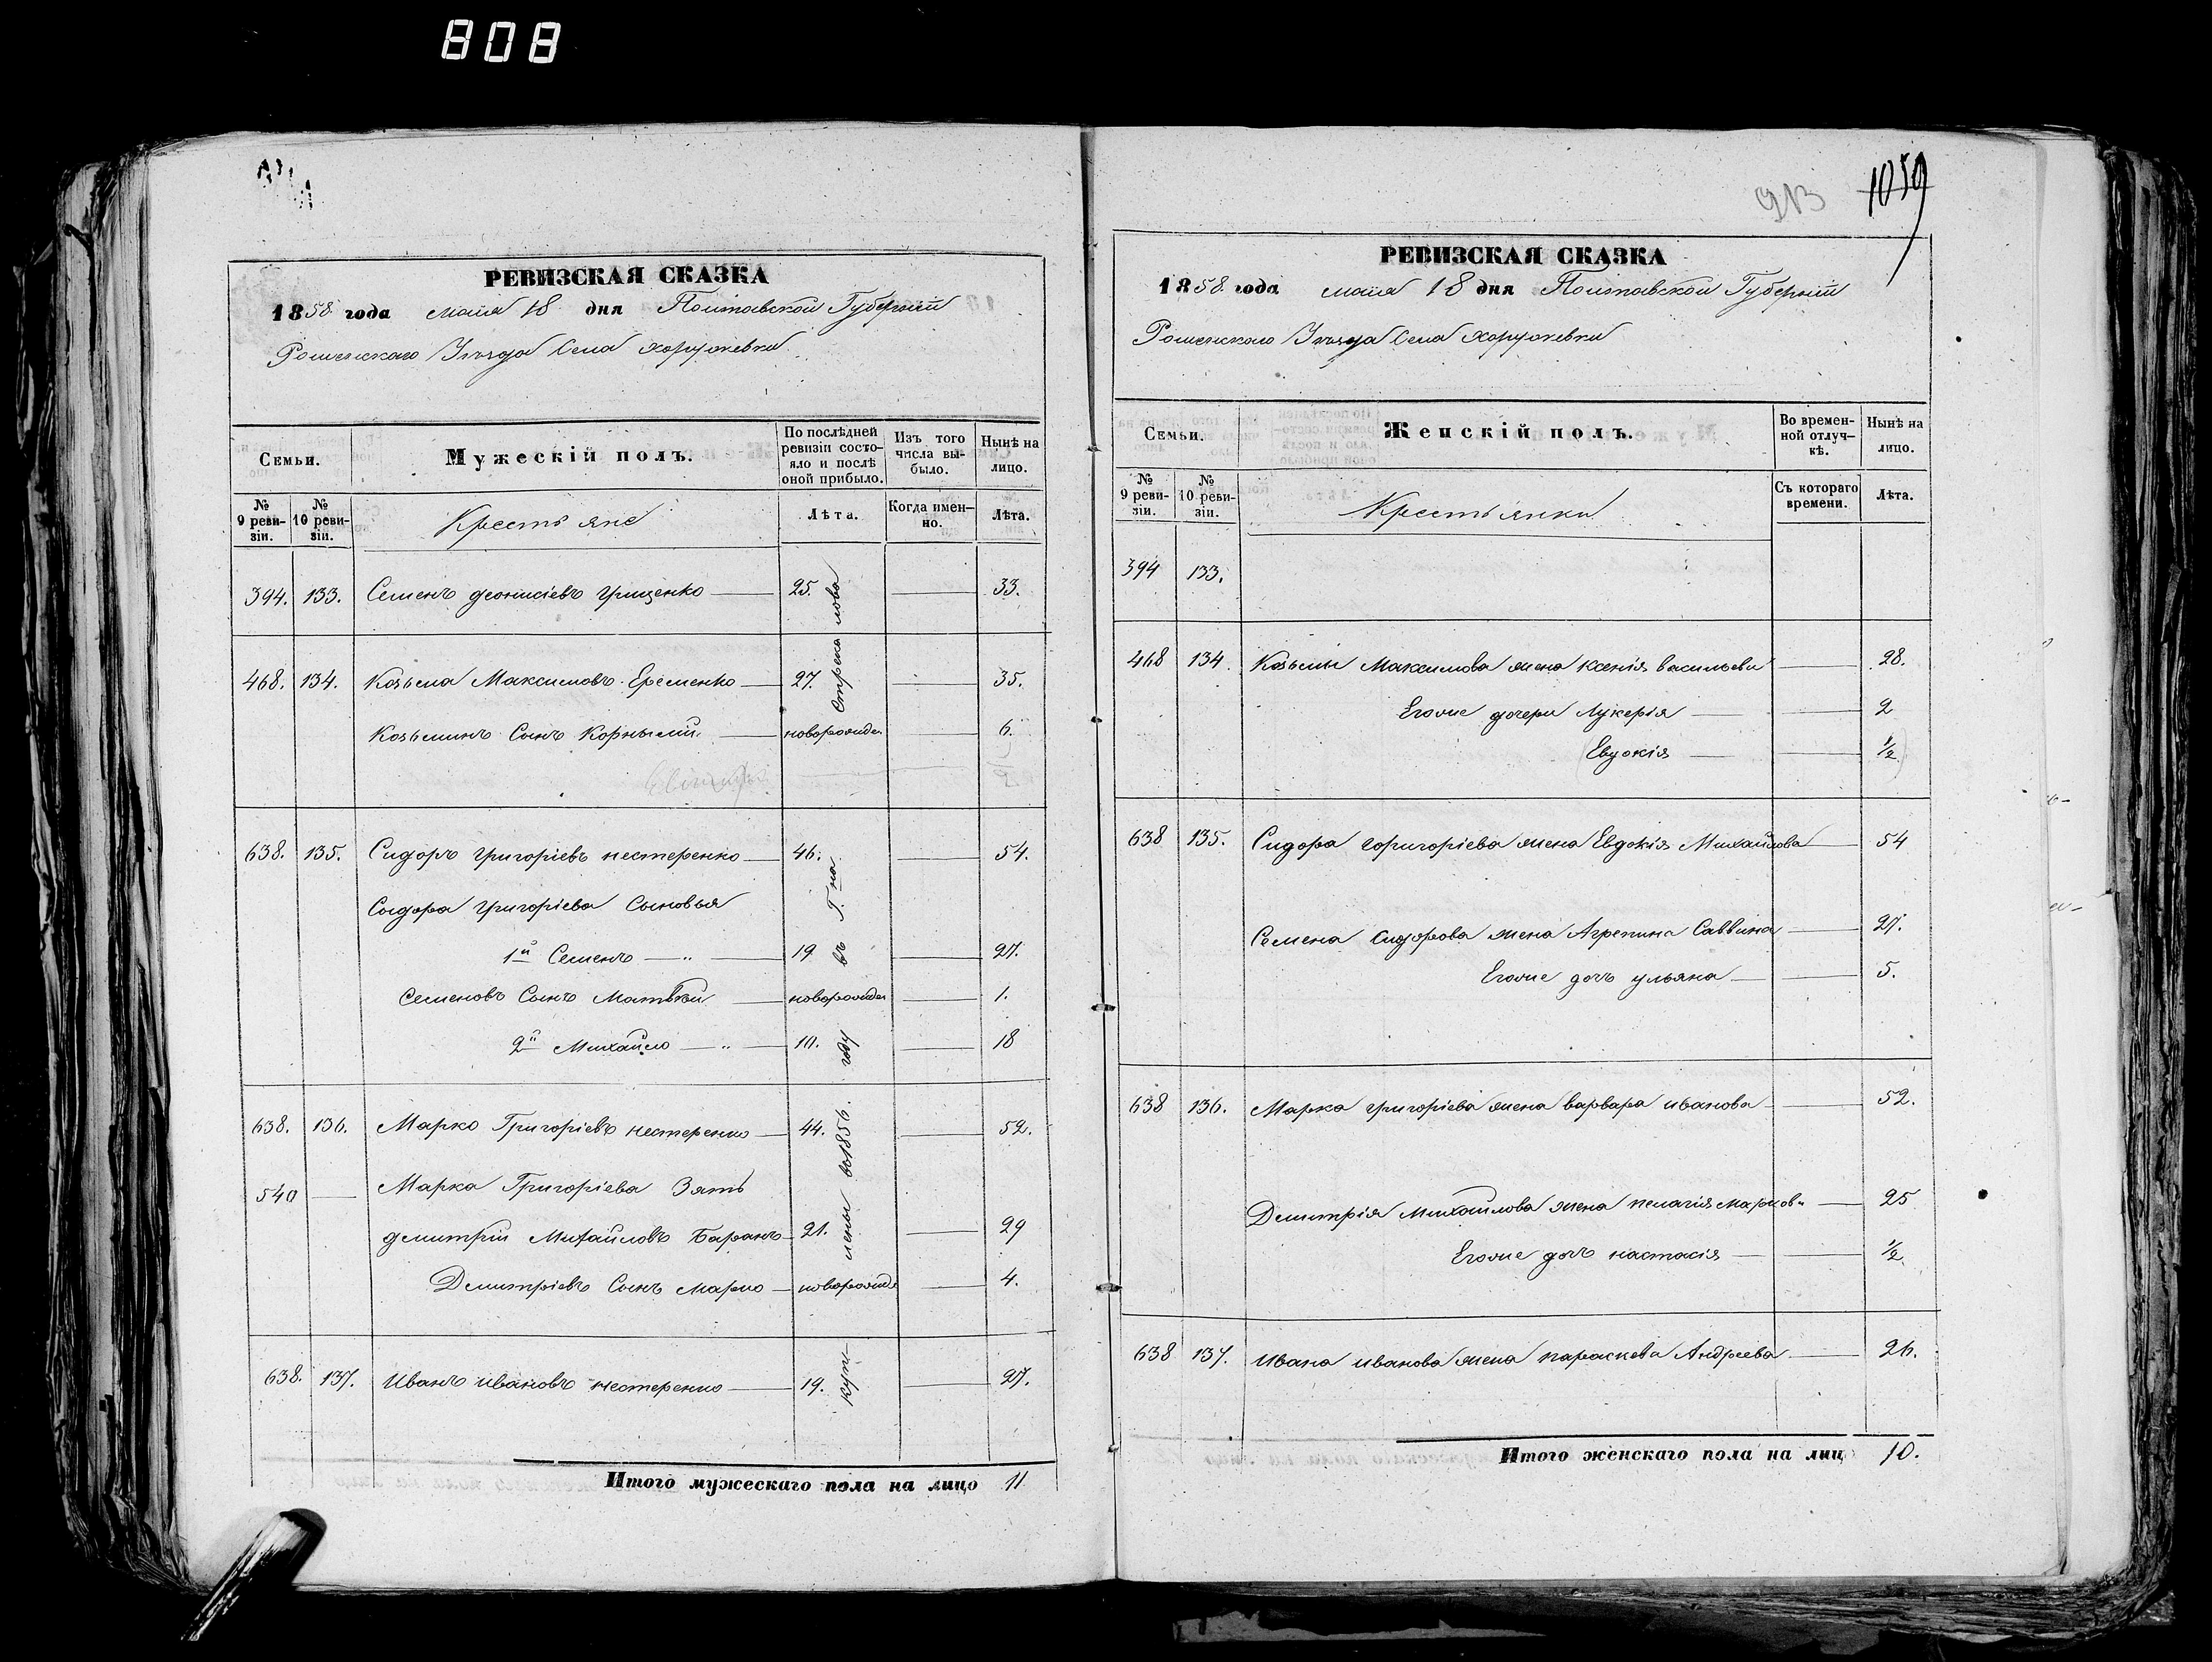 808
РЕВИЗСКАЯ СКАЗКА
1858 года маія 18 дня Полтавской Губерніи
Роменскаго Уезда Села Хоружевки
Семьи.
Мужескій полъ.
По послѣдней ревизіи состояло и послѣ оной прибыло.
Изъ того числа выбыло.
Нынѣ на лицо.
№ 9 ревизіи.
№ 10 ревизіи.
Крестьяне
Лѣта.
Когда именно.
Лѣта.
394. 133. Семенъ деонисіевъ грищенко 25. 33.
468. 134. Козьма Максимовъ Еременко 27. 35.
Козьминъ Сынъ Корнилій новорожден 6.
638. 135. Сидоръ григоріевъ нестеренко 46. 54.
Сидора григоріева Сыновья
1й Семенъ — " — 19 27.
Семеновъ Сынъ Матвѣй новорожден 1.
2й Михайло — " — 10. 18
638. 136. Марко Григоріевъ нестеренко 44. 52.
540 — Марка Григоріева Зять
дмитрій Михайловъ Баранъ 21. 29
Дмитріевъ Сынъ марко новорожде 4.
638. 137. Иванъ ивановъ нестеренко 19. 27.
куплены во 1856. году въ Г. на
Итого мужескаго пола на лицо 11
913 1059
РЕВИЗСКАЯ СКАЗКА
1858 года маія 18 дня Полтавской Губерніи
Роменскаго Уезда Села Хоружевки
Семьи.
Женскій полъ.
Во временной отлучкѣ.
Нынѣ на лицо.
№ 9 ревизіи.
№ 10 ревизіи.
Крестьянки
Съ котораго времени.
Лѣта.
394 133.
468 134. Козьмы Максимова жена Ксенія васильева 28.
Егоже дочери Лукерія 2
Евдокія 1/2
638 135. Сидора григоріева жена Евдокія Михайлова 54
Семена Сидорова жена Агрепина Саввина 27.
Егоже дочь ульяна 5.
638 136. Марка григоріева жена варвара иванова 52.
Дмитрія Михайлова жена пелагія марков 25
Егоже дочь настасія 1/2
638 137. Ивана иванова жена параскева Андреева 26.
Итого женскаго пола на лиц 10.